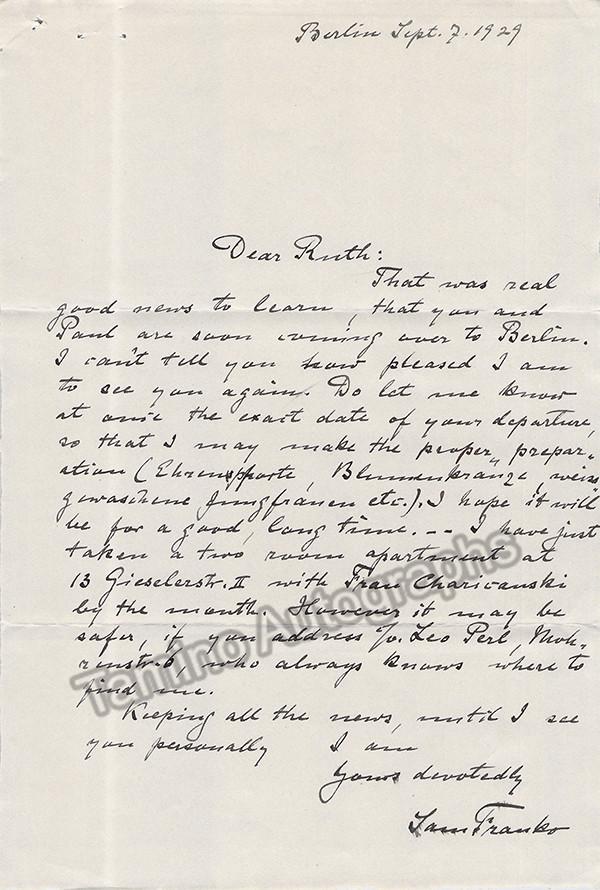 Berlin Sept. 7. 1929
Dear Ruth:
That was real
good news to learn, that you and
Paul are soon coming over to Berlin.
I can't tell you how pleased I am
to see you again. Do let me know
at once the exact date of your departure,
so that I may make the proper prepar-
ation (Ehrenpforte, Blumenkränze, "weiss
gewaschene Jungfrauen etc.). I hope it will
be for a good, long time. -- I have just
taken a two room apartment at
13 Gieselerstr. II with Frau Charicanski
by the month. However it may be
safer, if you address c/o. Leo Perl, Moh-
renstr. 6, who always knows where to
find me.
Keeping all the news, until I see
you personally I am
Yours devotedly
Sam Franko
Tamino Autographs